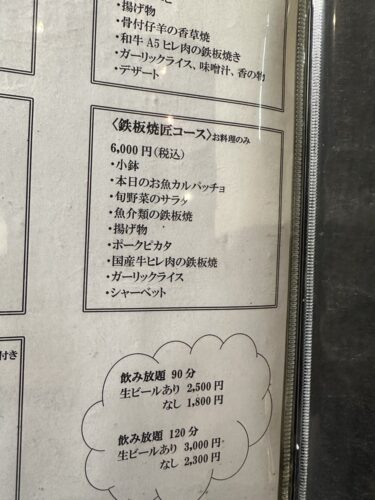 ・揚げ物
・骨付仔羊の香草焼
・和牛 A5 ヒレ肉の鉄板焼き
・ガーリックライス、味噌汁、香の物
・デザート
〈鉄板焼匠コース〉お料理のみ
6,000 円（税込）
・小鉢
・本日のお魚カルパッチョ
・旬野菜のサラダ
・魚介類の鉄板焼
・揚げ物
・ポークピカタ
・国産牛ヒレ肉の鉄板焼
・ガーリックライス
・シャーベット
付き
飲み放題 90 分
生ビールあり 2,500 円
なし 1,800 円
飲み放題 120 分
生ビールあり 3,000 円
なし 2,300 円